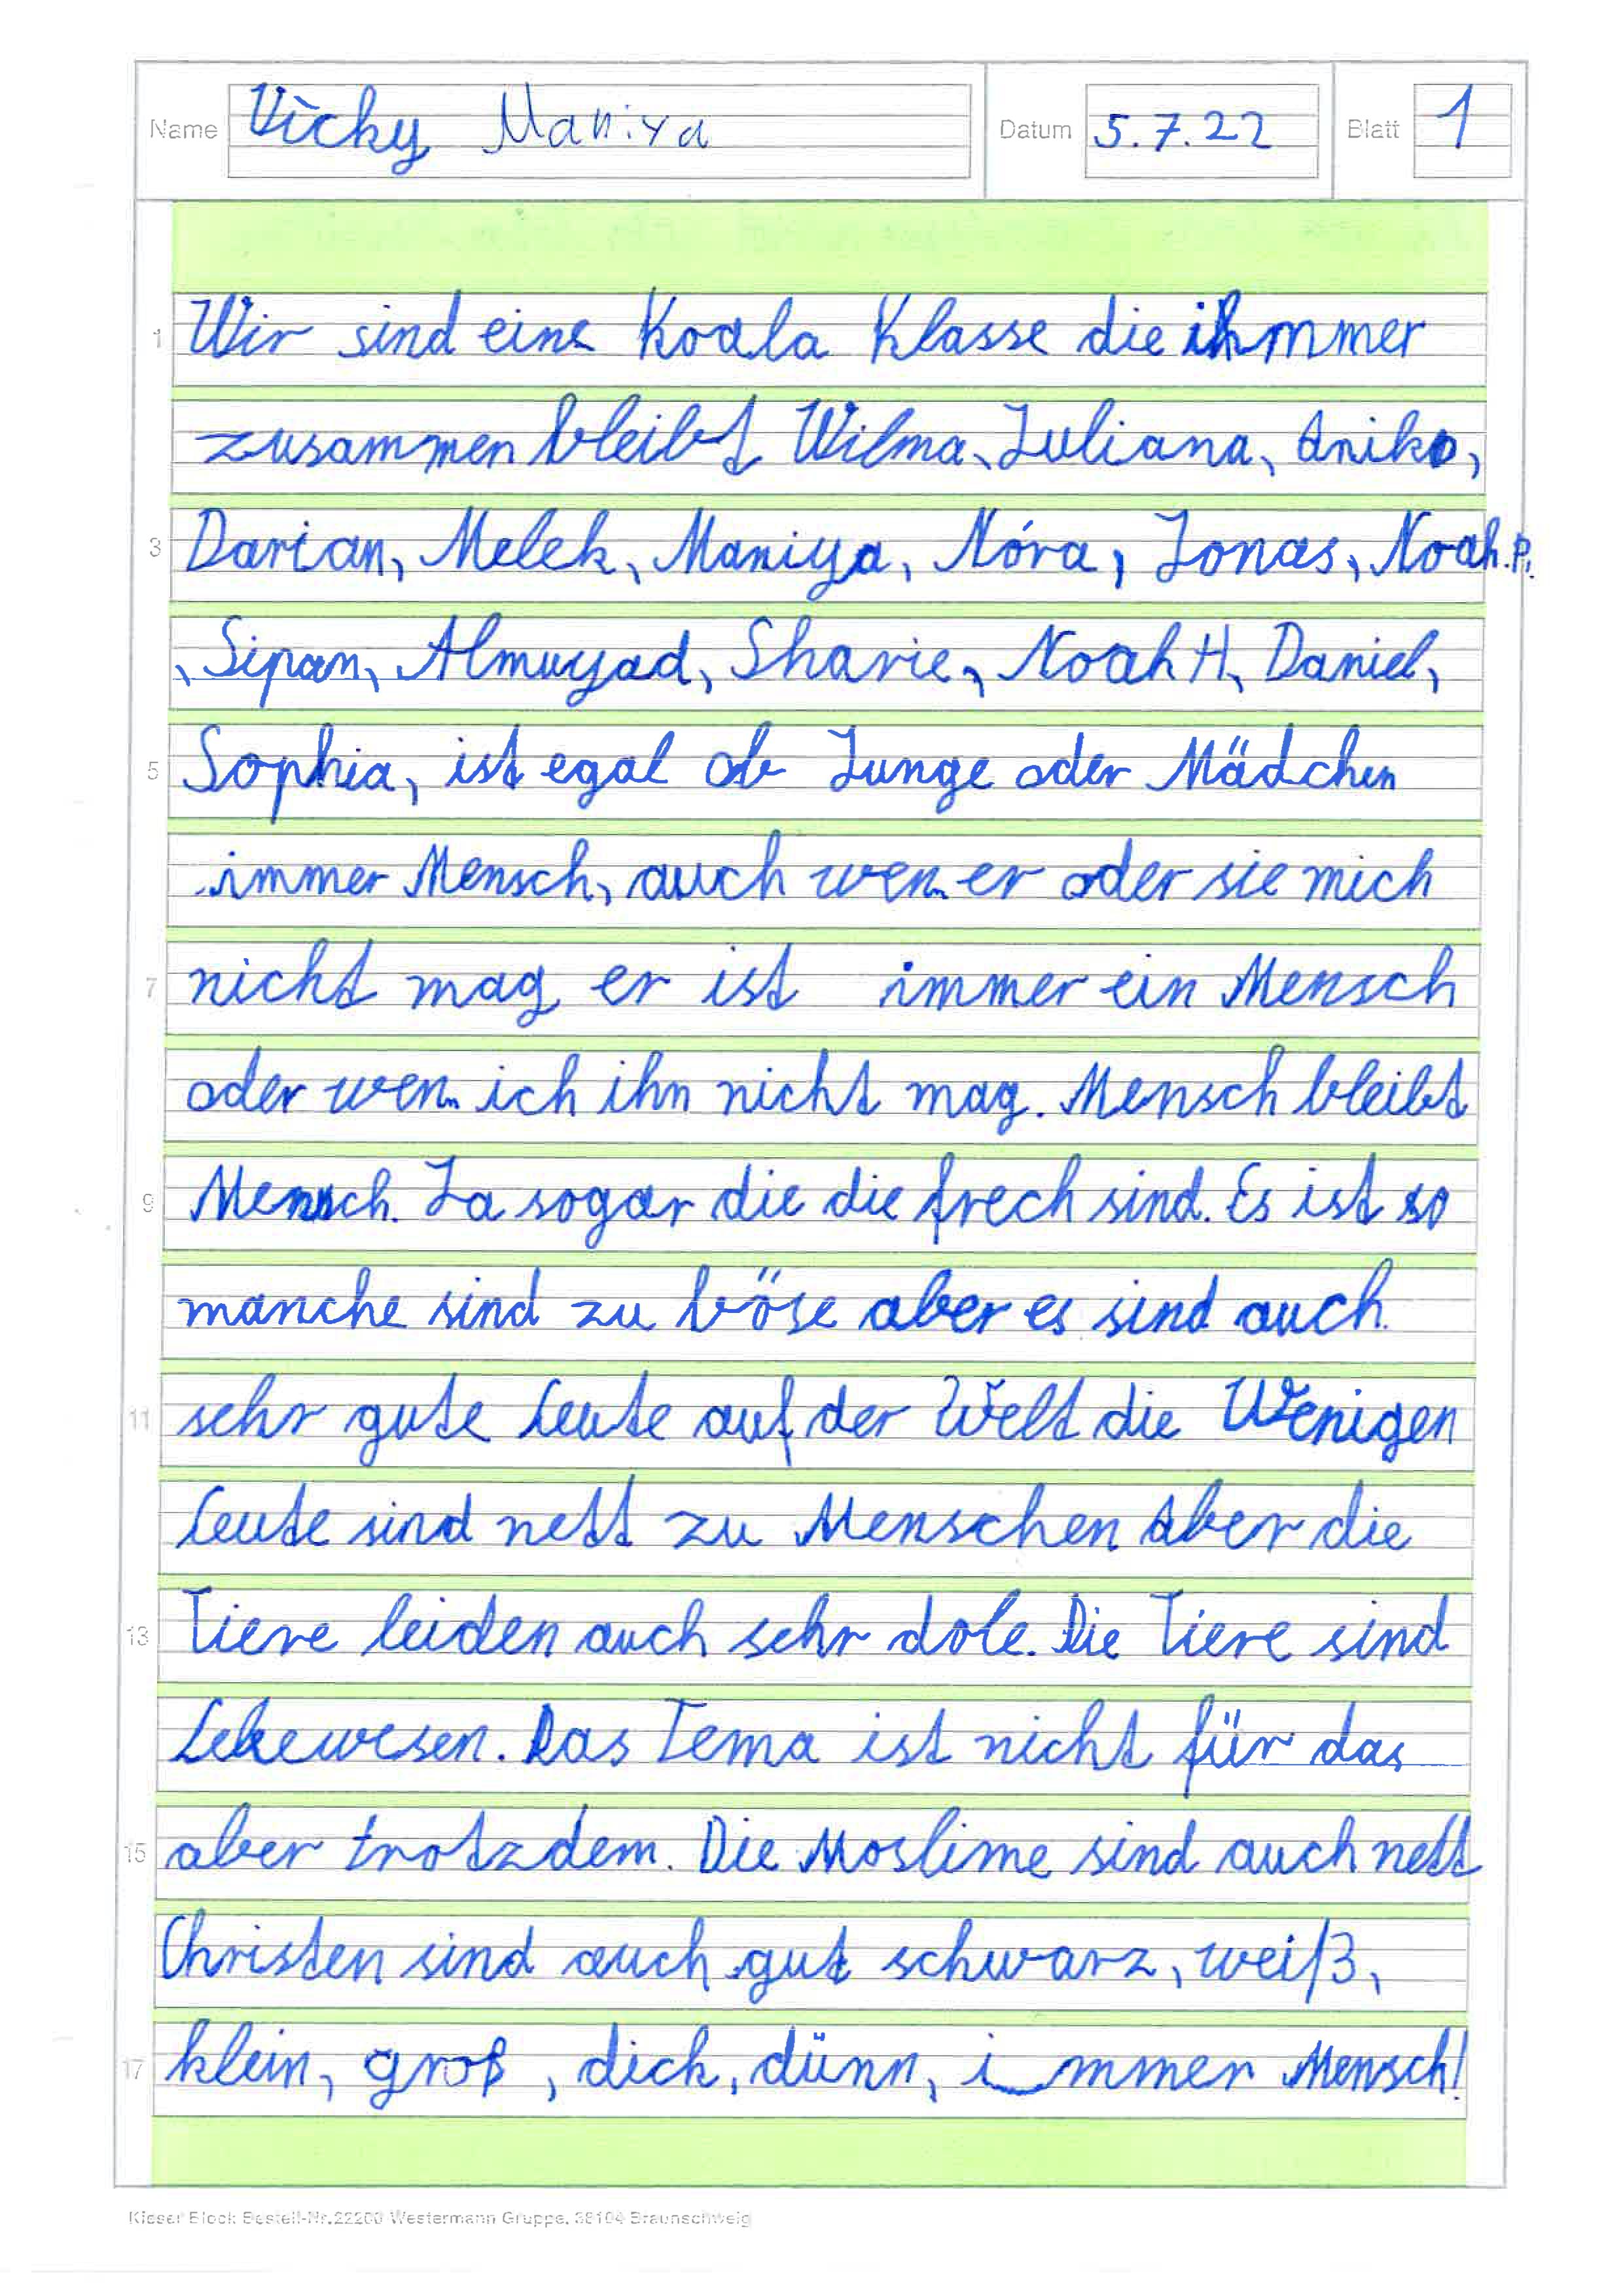 Name Vicky Maniya Datum 5.7.22 Blatt 1
1 Wir sind eine Koala Klasse die ihmmer
zusammen bleibt Wilma, Juliana, Aniko,
3 Darian, Melek, Maniya, Nóra, Jonas, Noah.P.
, Sipan, Almuyad, Sharie, Noah H, Daniel,
5 Sophia, ist egal ob Junge oder Mädchen
immer Mensch, auch wen er oder sie mich
7 nicht mag er ist immer ein Mensch
oder wen ich ihn nicht mag. Mensch bleibt
9 Mensch. Ja sogar die die frech sind. Es ist so
manche sind zu böse aber es sind auch
11 sehr gute Leute auf der Welt die Wenigen
Leute sind nett zu Menschen Aber die
13 Tiere leiden auch sehr dole. Die Tiere sind
Lebewesen. Das Tema ist nicht für das
15 aber trotzdem. Die Moslime sind auch nett
Christen sind auch gut schwarz, weiß,
17 klein, groß, dick, dünn, immer Mensch!
Kieser Block Bestell-Nr.22200 Westermann Gruppe, 38104 Braunschweig